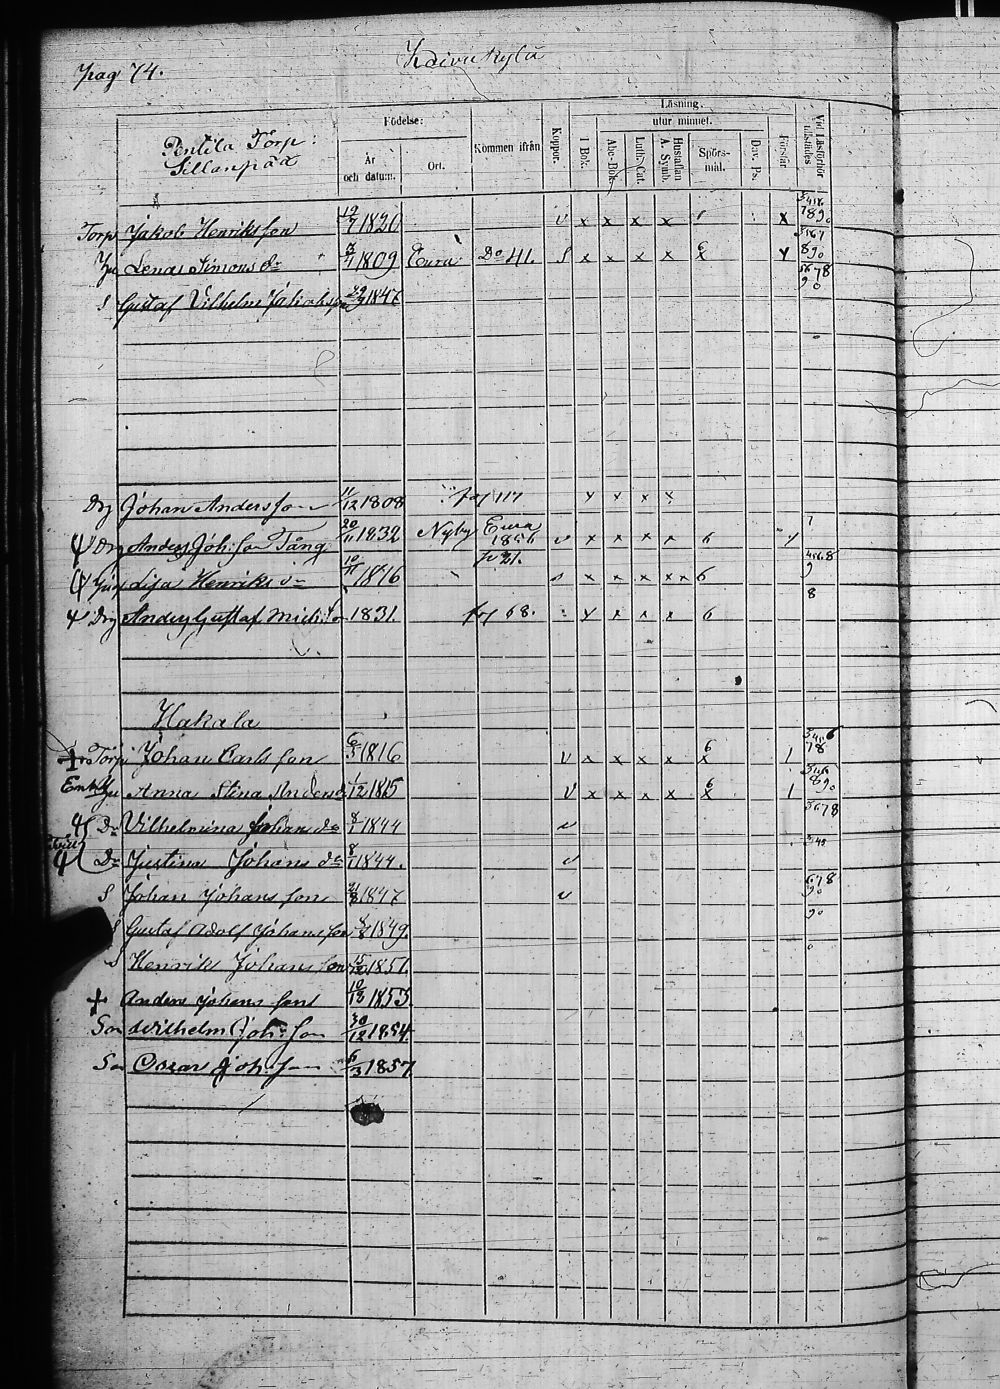 pag 74.
Kaivukylä
Pentila Torp:
Sillanpää
Födelse:
År och datum.
Ort.
Kommen ifrån
Koppor.
Läsning.
utur minnet.
I Bok.
Abc-Bok.
Luth. Cat.
Hustaflan A. Symb.
Spörs-mål.
Dav. Ps.
Förstår
Vid Läsförhör tillstädes
Torp Jakob Henriksson 19/7 1820 v x x x x x
Hu Lena Simons dr 1809 Eura Do 41. s x x x x x 6
S Gustaf Vilhelm Jakobsson 29/9 1847
Drg Johan Andersson 11/12 1808 fol 117 x x x x
Drg Anders Joh:son Tång 20/11 1832 Nyby Eura 1856 v x x x x 6
Lisa Henriks dr 10/11 1816 x x x x x 6
Drg Anders Gustaf Mich:son 1831. fol 68. x x x x 6
Hakala
Torp Johan Carlsson 6/5 1816 v x x x x x 6
Enk Hu Anna Stina Anders dr 1/12 1815 v x x x x x 6
Dr Vilhelmina Johans dr 8/1 1844 v
Dr Justina Johans dr 8/1 1844. v
S Johan Johansson 21/8 1847 v
S Gustaf Adolf Johansson 8/8 1849.
S Henrik Johansson 15/12 1851.
Anders Johansson 10/12 1853
Son Wilhelm Joh:son 30/12 1854.
Son Oscar Joh:son 6/3 1857.